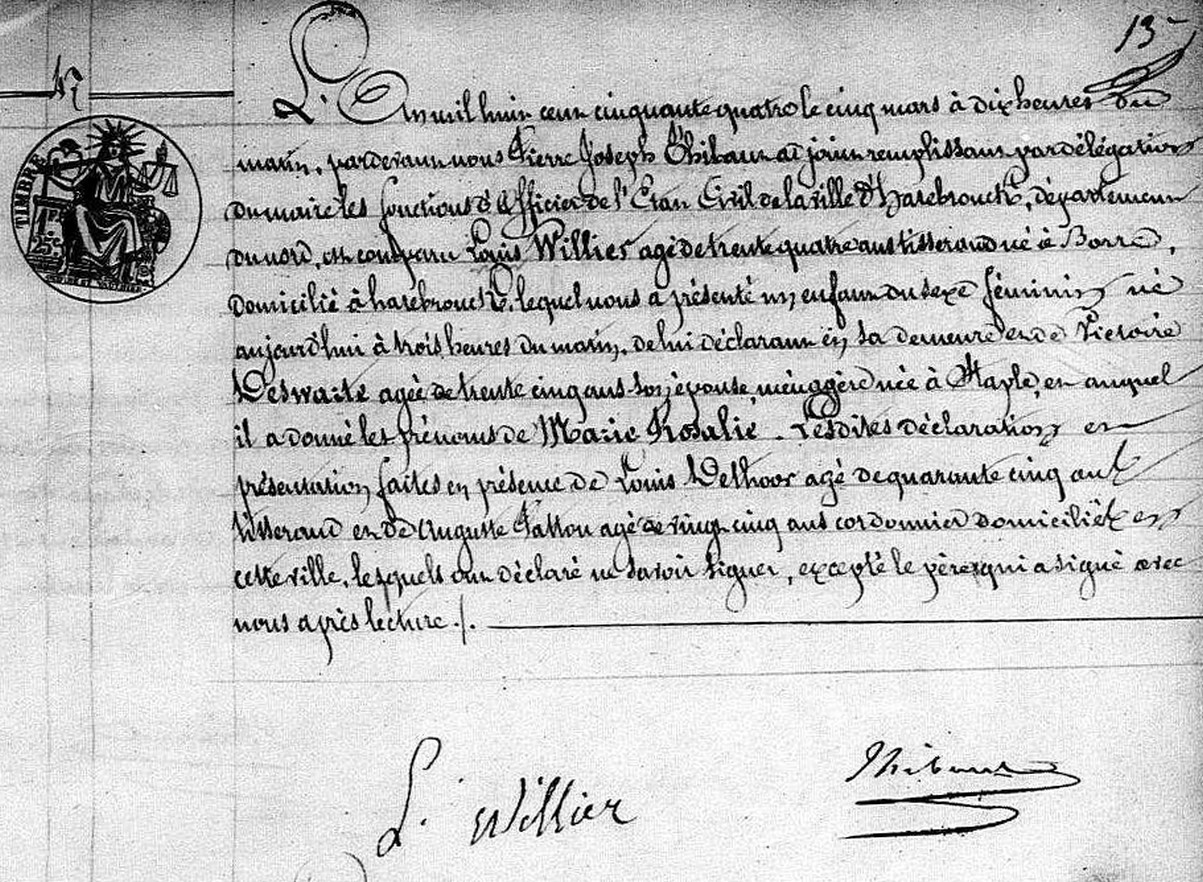 13
L'An mil huit cent cinquante quatre le cinq mars à dix heures du
matin, pardevant nous Pierre Joseph Thibaut adjoint remplissant par délégation
du maire les fonctions d'Officier de l'Etat Civil de la ville d'hazebrouck, département
du nord, est comparu Louis Willier agé de trente quatre ans tisserand né à Borre,
domicilié à hazebrouck, lequel nous a présenté un enfant du sexe féminin né
aujourd'hui à trois heures du matin, de lui déclarant en sa demeure et de Victoire
Deswarte agée de trente cinq ans son épouse, ménagère née à Staple, et auquel
il a donné les prénoms de Marie Rosalie. Lesdites déclaration et
présentation faites en présence de Louis Delhoor agé de quarante cinq ans
tisserand et de Auguste Fattou agé de vingt cinq ans cordonnier domiciliés en
cette ville, lesquels ont déclaré ne savoir signer, excepté le père qui a signé avec
nous après lecture ./.
TIMBRE
25c
L. Willier
Thibaut